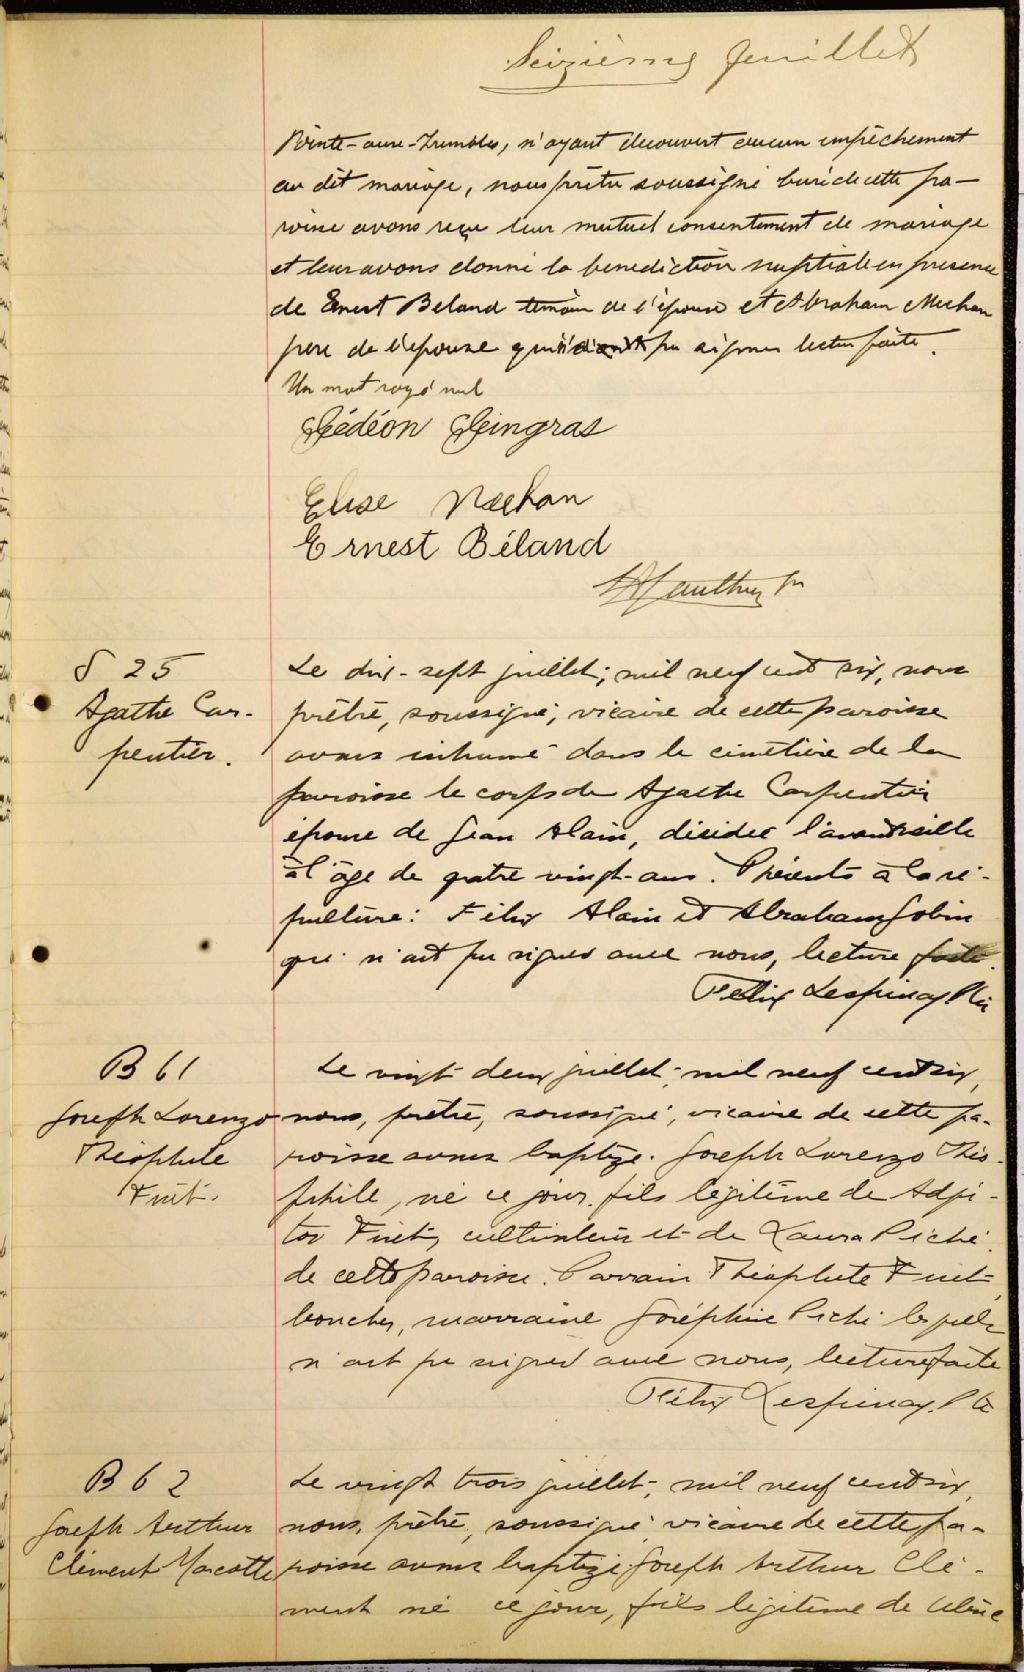 Seizième feuillet
Pointe-aux-Trembles, n'ayant decouvert aucun empêchement
au dit mariage, nous prêtre soussigné curé de cette pa-
roisse avons reçu leur mutuel consentement de mariage
et leur avons donné la benediction nuptiale en presence
de Ernest Beland temoin de l'époux et Abraham Meehan
pere de l'épouse qui pu signer lecture faite.
Un mot rayé nul
Gédéon Gingras
Elise Meehan
Ernest Béland
Ptr
S 25
Agathe Car-
pentier.
Le dix-sept juillet, mil neuf cent six, nous
prêtre, soussigné, vicaire de cette paroisse
avons inhumé dans le cimetière de la
paroisse le corps de Agathe Carpentier
épouse de Jean Alain, décédée l'avant veille
à l'âge de quatre vingt-ans. Présents à la sé-
pulture: Félix Alain et Abraham Gobin
qui n'ont pu signer avec nous, lecture faite.
Félix Lespinay Ptr
B 61
Joseph Lorenzo
Théophile
Fiset.
Le vingt deux juillet, mil neuf cent six,
nous, prêtre, soussigné, vicaire de cette pa-
roisse avons baptizé Joseph Lorenzo Théo-
phile, né ce jour, fils légitime de Adju-
tor Fiset, cultivateur et de Laura Piché
de cette paroisse. Parrain Théophile Fiset
boucher, marraine Joséphine Piché lesquels
n'ont pu signer avec nous, lecture faite
Félix Lespinay. Ptr
B 62
Joseph Arthur
Clément Marcotte
Le vingt trois juillet, mil neuf cent six,
nous, prêtre, soussigné vicaire de cette pa-
roisse avons baptizé Joseph Arthur Clé-
ment né ce jour, fils légitime de